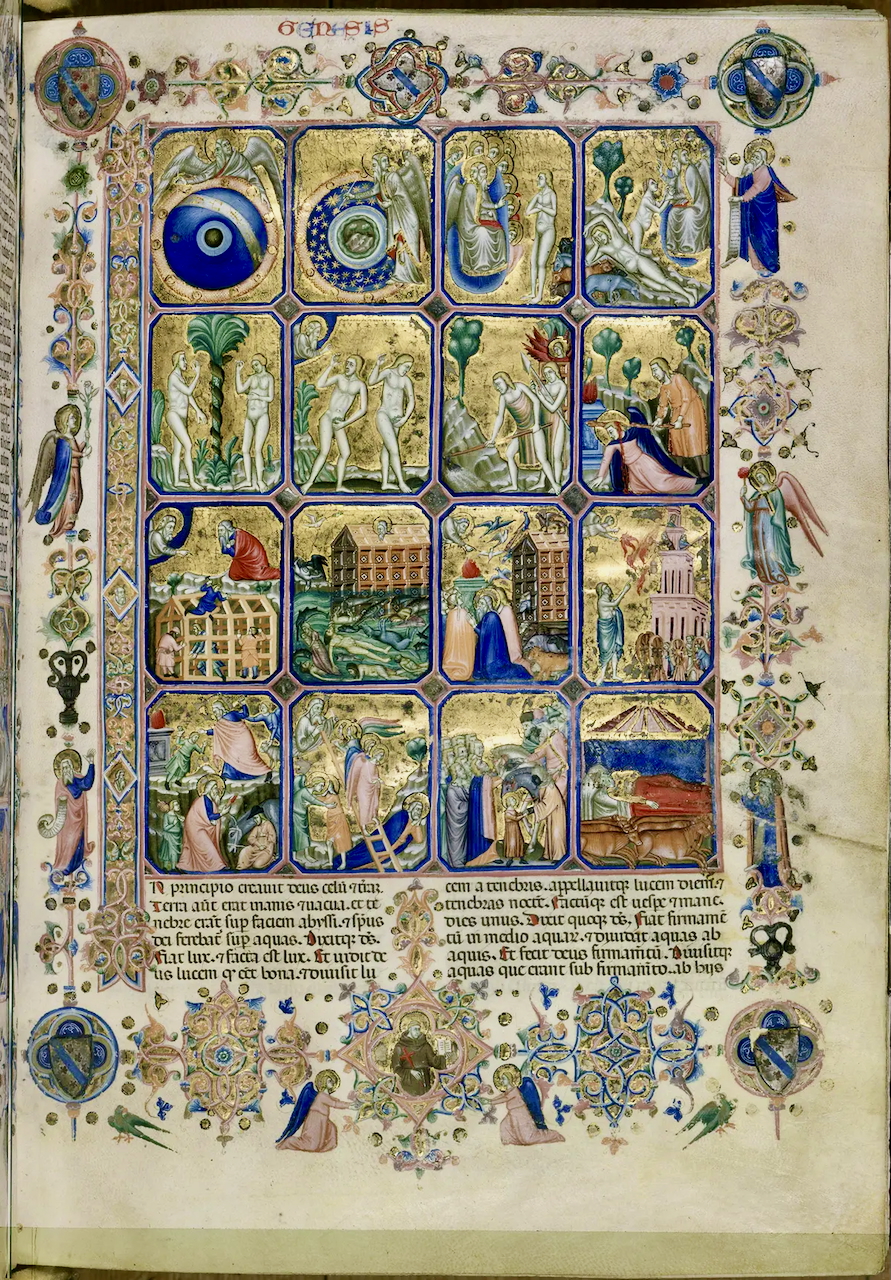 GENESIS
IN principio creauit deus celū ⁊ t̄rā.
Terra aūt erat inanis ⁊ uacua. et te
nebre erāt sup faciem abyssi. ⁊ sp̄us
dei ferebat᷑ sup aquas. Dixitqꝫ d̄s.
Fiat lux. ⁊ facta est lux. Et uidit de
us lucem qꝫ eēt bona. ⁊ diuisit lu
cem a tenebris. appellauitqꝫ lucem diem ⁊
tenebras nocte. Factūqꝫ est uespe ⁊ mane.
dies unus. Dixit quoqꝫ d̄s. Fiat firmame
tū in medio aquaꝝ. ⁊ diuidat aquas ab
aquis. Et fecit deus firmam̄tū. Diuisitqꝫ
aquas que erant sub firmam̄to. ab hijs